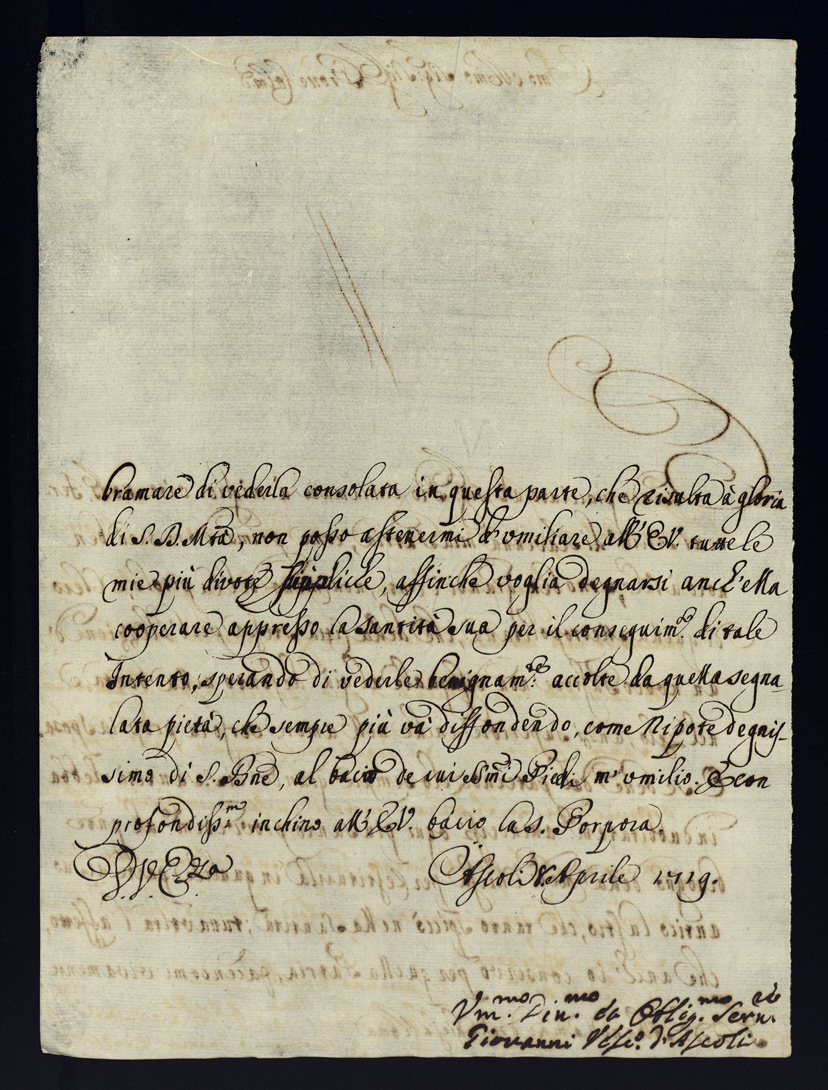 bramare di vederla consolata in questa parte, che risulta à gloria
di S. B. Mtà, non posso astenermi d'umiliare all'E.V. tutte le
mie più divote suppliche, affinche voglia degnarsi anch'ella
cooperare appresso la Santità sua per il conseguim.to di tale
Intento, sperando di vederle benignam.te accolte da quella segna-
lata pietà, che sempre più và diffondendo, come Nipote degnis-
simo di S. Bne, al bacio de cui SSmi Piedi m'umilio. E con
profondiss.mo inchino all'E.V. bacio la S. Porpora.
D. V. E.za
Ascoli 8 Aprile 1719.
Vm.mo Div.mo ed Oblig.mo Serv.re
Giovanni Vesc.o d'Ascoli